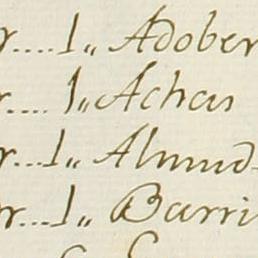 r.... 1,, Adober
r.... 1,, Achas
r... 1,, Almud-
r... 1,, Barri